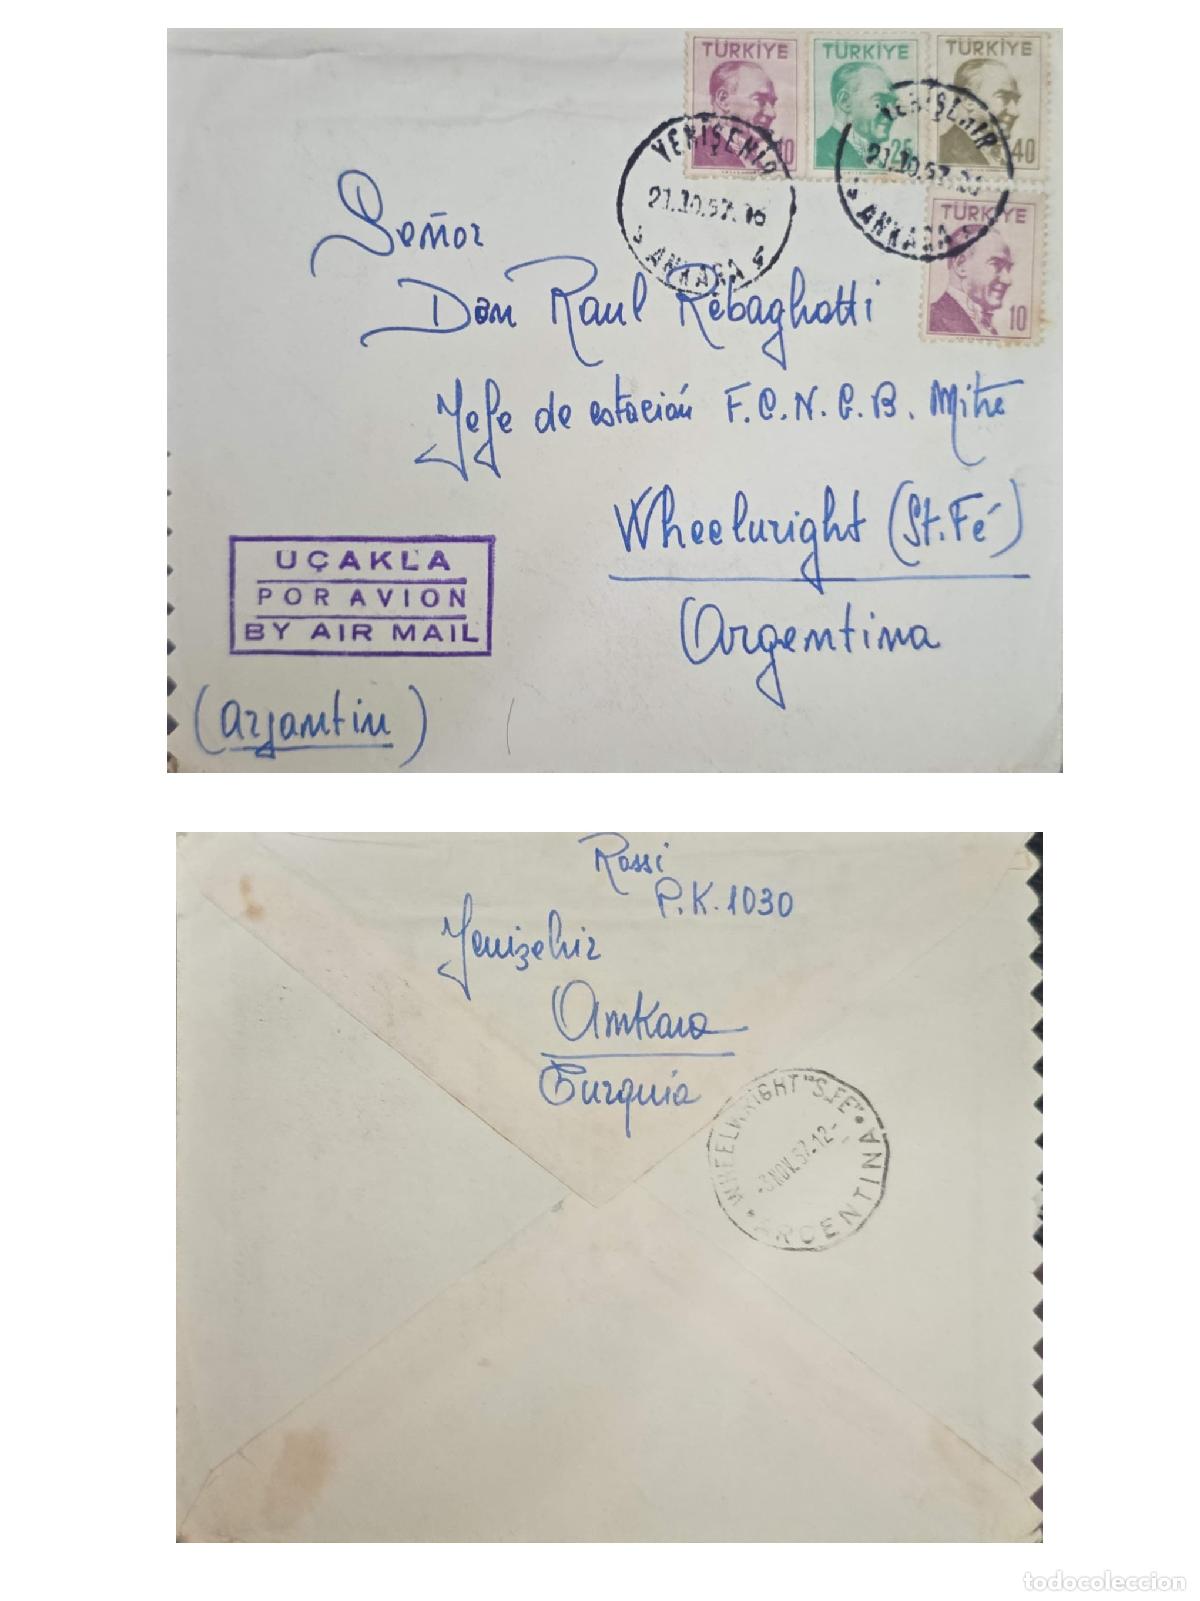 TÜRKİYE
10
TÜRKİYE
25
TÜRKİYE
40
TÜRKİYE
10
YENİŞEHİR
21.10.57.16
ANKARA
YENİŞEHİR
21.10.57.16
ANKARA
Señor
Don Raul Rebaghatti
Jefe de estación F.C.N.G.B. Mitre
Wheelwright (St. Fé)
Argentina
UÇAKLA
POR AVION
BY AIR MAIL
(Arjantin)
Rossi
P.K. 1030
Yenişehir
Ankara
Turquia
WHEELWRIGHT "S.FE"
-3 NOV. 57-12-
ARGENTINA
todocoleccion